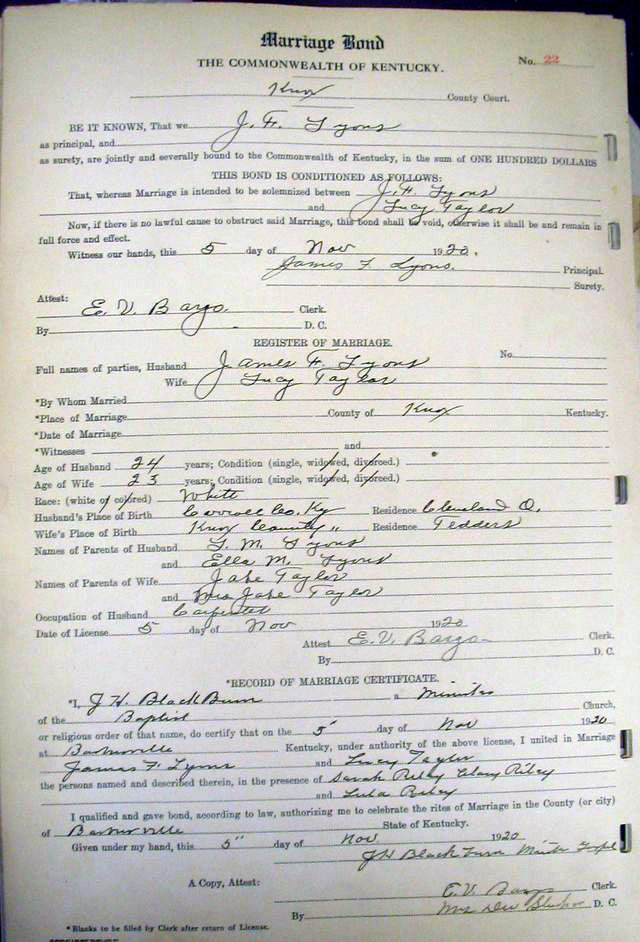 Marriage Bond
THE COMMONWEALTH OF KENTUCKY.
No. 22
Knox County Court.
BE IT KNOWN, That we J. F. Lyons
as principal, and
as surety, are jointly and severally bound to the Commonwealth of Kentucky, in the sum of ONE HUNDRED DOLLARS
THIS BOND IS CONDITIONED AS FOLLOWS:
That, whereas Marriage is intended to be solemnized between J. F. Lyons
and Lucy Taylor
Now, if there is no lawful cause to obstruct said Marriage, this bond shall be void, otherwise it shall be and remain in
full force and effect.
Witness our hands, this 5 day of Nov 1920.
James F. Lyons. Principal.
Surety.
Attest:
E. V. Bargo Clerk.
By D. C.
REGISTER OF MARRIAGE.
Full names of parties, Husband James F. Lyons No.
Wife Lucy Taylor
*By Whom Married
*Place of Marriage County of Knox Kentucky.
*Date of Marriage
*Witnesses and
Age of Husband 24 years; Condition (single, widowed, divorced.)
Age of Wife 23 years; Condition (single, widowed, divorced.)
Race: (white or colored) White
Husband's Place of Birth Carroll Co. Ky Residence Cleveland O.
Wife's Place of Birth Knox County " Residence Tedders
Names of Parents of Husband M. Lyons
and Ella M. Lyons
Names of Parents of Wife Jake Taylor
and Mrs Jake Taylor
Occupation of Husband Carpenter
Date of License 5 day of Nov 1920
Attest E. V. Bargo Clerk.
By D. C.
*RECORD OF MARRIAGE CERTIFICATE.
*I, J H. BlackBurn a Minister
of the Baptist Church,
or religious order of that name, do certify that on the 5" day of Nov 1920
at Barbourville Kentucky, under authority of the above license, I united in Marriage
James F Lyons and Lucy Taylor
the persons named and described therein, in the presence of Sarah Riley Clay Riley
and Lula Riley
I qualified and gave bond, according to law, authorizing me to celebrate the rites of Marriage in the County (or city)
of Barbourville State of Kentucky.
Given under my hand, this 5" day of Nov 1920
JH BlackBurn
A Copy, Attest: E. V. Bargo Clerk.
By Mrs D. C.
*Blanks to be filled by Clerk after return of License.